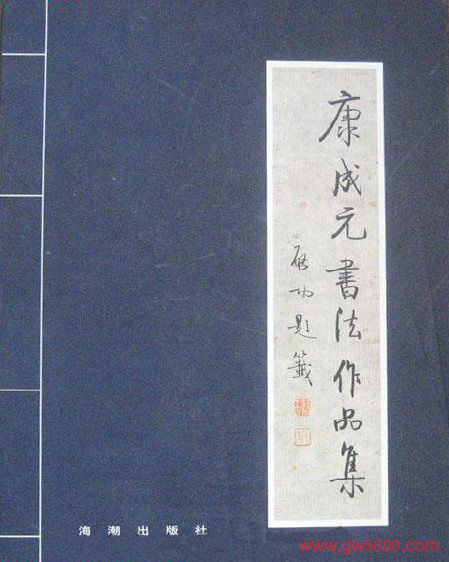 康成元書法作品集
启功題籤
海潮出版社
www.gw5000.com